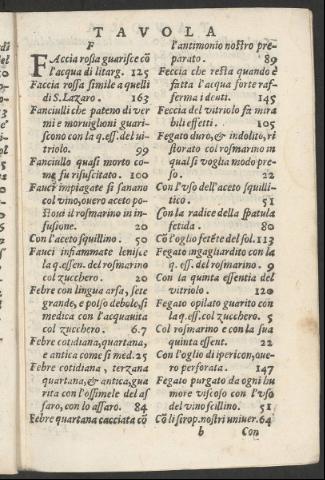 TAVOLA
F
FAccia rossa guarisce cõ
l'acqua di litarg. 125
Faccia rossa simile a quelli
di S. Lazaro. 163
Fanciulli che pateno di ver
mi e moruiglioni guari-
scono con la q. ess. del ui-
triolo. 99
Fanciullo quasi morto co-
me fu risuscitato. 100
Fauci impiagate si sanano
col vino, ouero aceto po-
stoui il rosmarino in in-
fusione. 20
Con l'aceto squillino. 50
Fauci infiammate lenisce
la q. essen. del rosmarino
col zucchero. 20
Febre con lingua arsa, sete
grande, e polso debole, si
medica con l'acquauita
col zucchero. 6.7
Febre cotidiana, quartana,
e antica come si med. 25
Febre cotidiana, terzana
quartana, & antica, gua
rita con l'ossimele del as
saro, con lo assaro. 84
Febre quartana cacciata cõ
l'antimonio nostro pre-
parato. 89
Feccia che resta quando è
fatta l'acqua forte raf-
ferma i denti. 145
Feccia del vitriolo fa mira
bili effetti. 105
Fegato duro, & indolito, ri
storato col rosmarino in
qual si voglia modo pre-
so. 22
Con l'vso dell'aceto squilli-
tico. 51
Con la radice della spatula
fetida. 80
Cõ l'oglio fetẽte del sol. 113
Fegato ingagliardito con la
q. ess. del rosmarino. 9
Con la quinta essentia del
vitriolo. 120
Fegato opilato guarito con
la q. ess. col zucchero. 5
Col rosmarino e con la sua
quinta essent. 22
Con l'oglio di ipericon, oue-
ro perforata. 147
Fegato purgato da ogni hu
more viscoso con l'vso
del vino scillino. 51
Cõ li sirop. nostri uniuer. 64
b Con